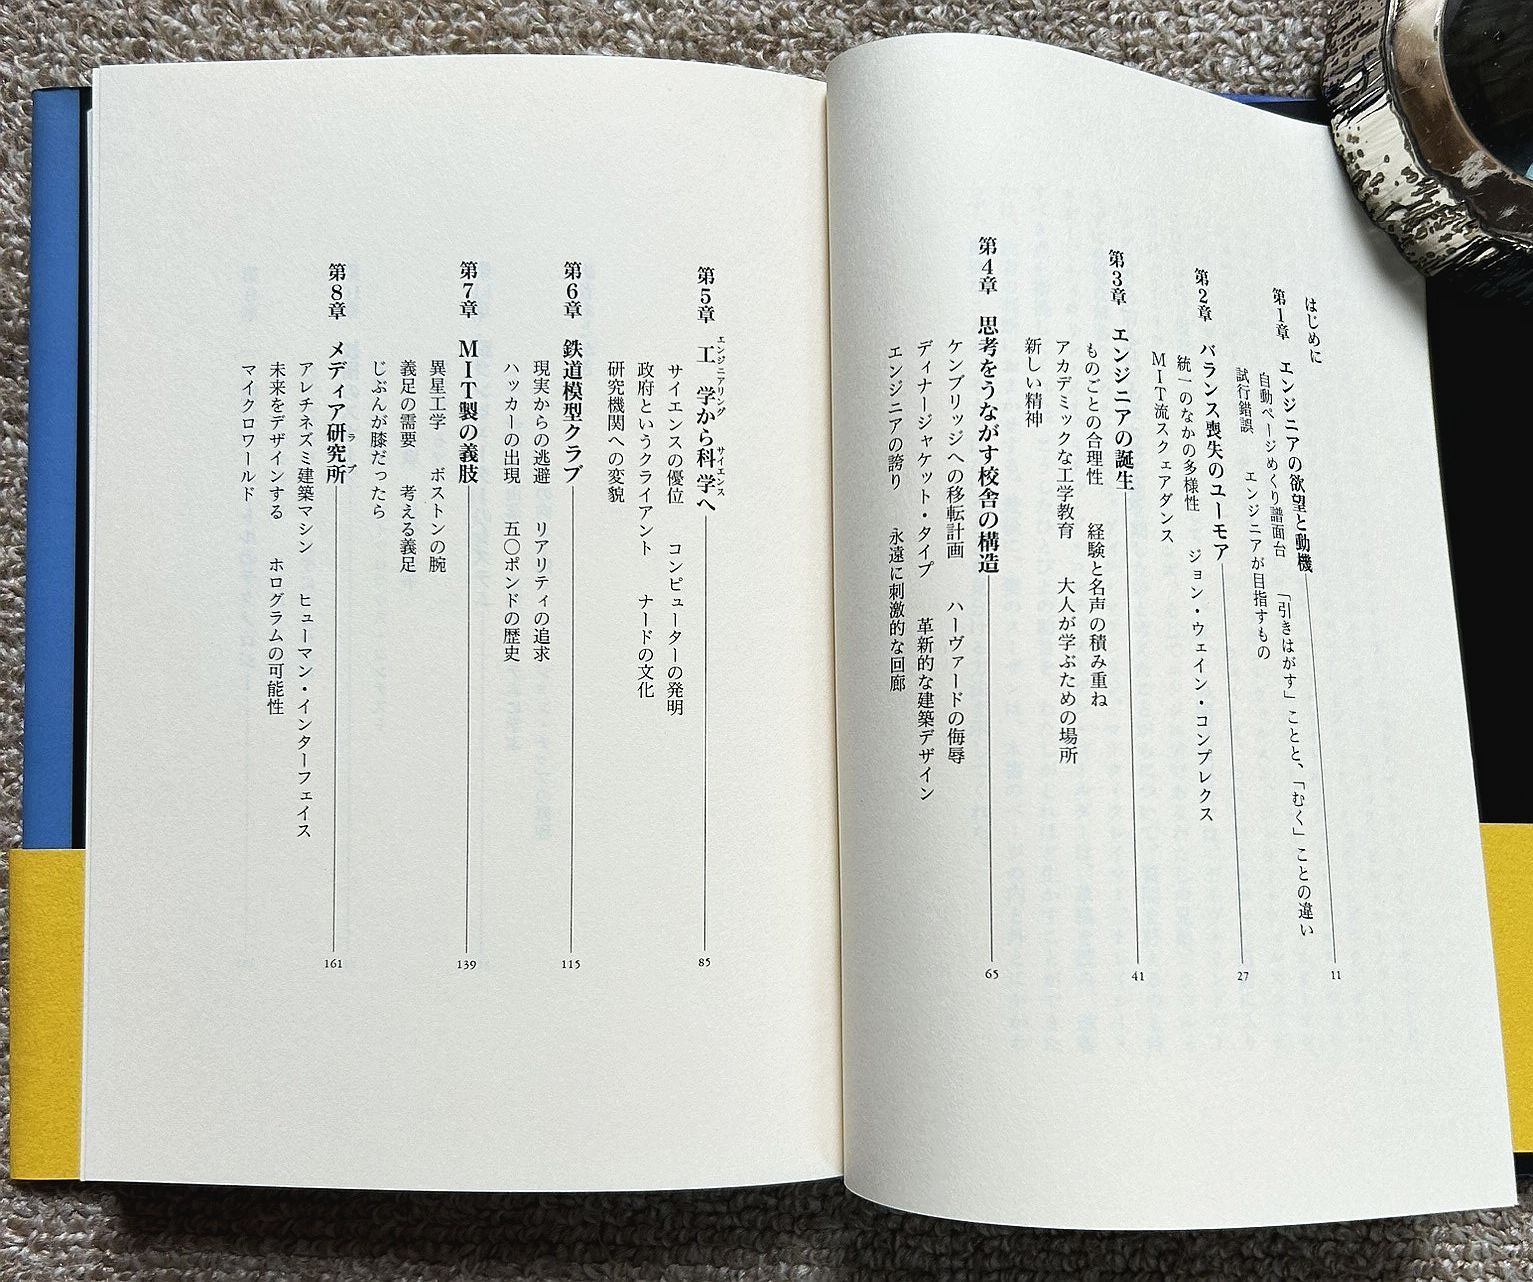 はじめに
第1章 エンジニアの欲望と動機 11
自動ページめくり譜面台 「引きはがす」ことと、「むく」ことの違い
試行錯誤 エンジニアが目指すもの
第2章 バランス喪失のユーモア 27
統一のなかの多様性 ジョン・ウェイン・コンプレクス
MIT流スクェアダンス
第3章 エンジニアの誕生 41
ものごとの合理性 経験と名声の積み重ね
アカデミックな工学教育 大人が学ぶための場所
新しい精神
第4章 思考をうながす校舎の構造 65
ケンブリッジへの移転計画 ハーヴァードの侮辱
ディナージャケット・タイプ 革新的な建築デザイン
エンジニアの誇り 永遠に刺激的な回廊
第5章 工学から科学へ 85
エンジニアリング サイエンス
サイエンスの優位 コンピューターの発明
政府というクライアント ナードの文化
研究機関への変貌
第6章 鉄道模型クラブ 115
現実からの逃避 リアリティの追求
ハッカーの出現 五〇ポンドの歴史
第7章 MIT製の義肢 139
異星工学 ボストンの腕
義足の需要 考える義足
じぶんが膝だったら
第8章 メディア研究所 161
ラブ
アレチネズミ建築マシン ヒューマン・インターフェイス
未来をデザインする ホログラムの可能性
マイクロワールド